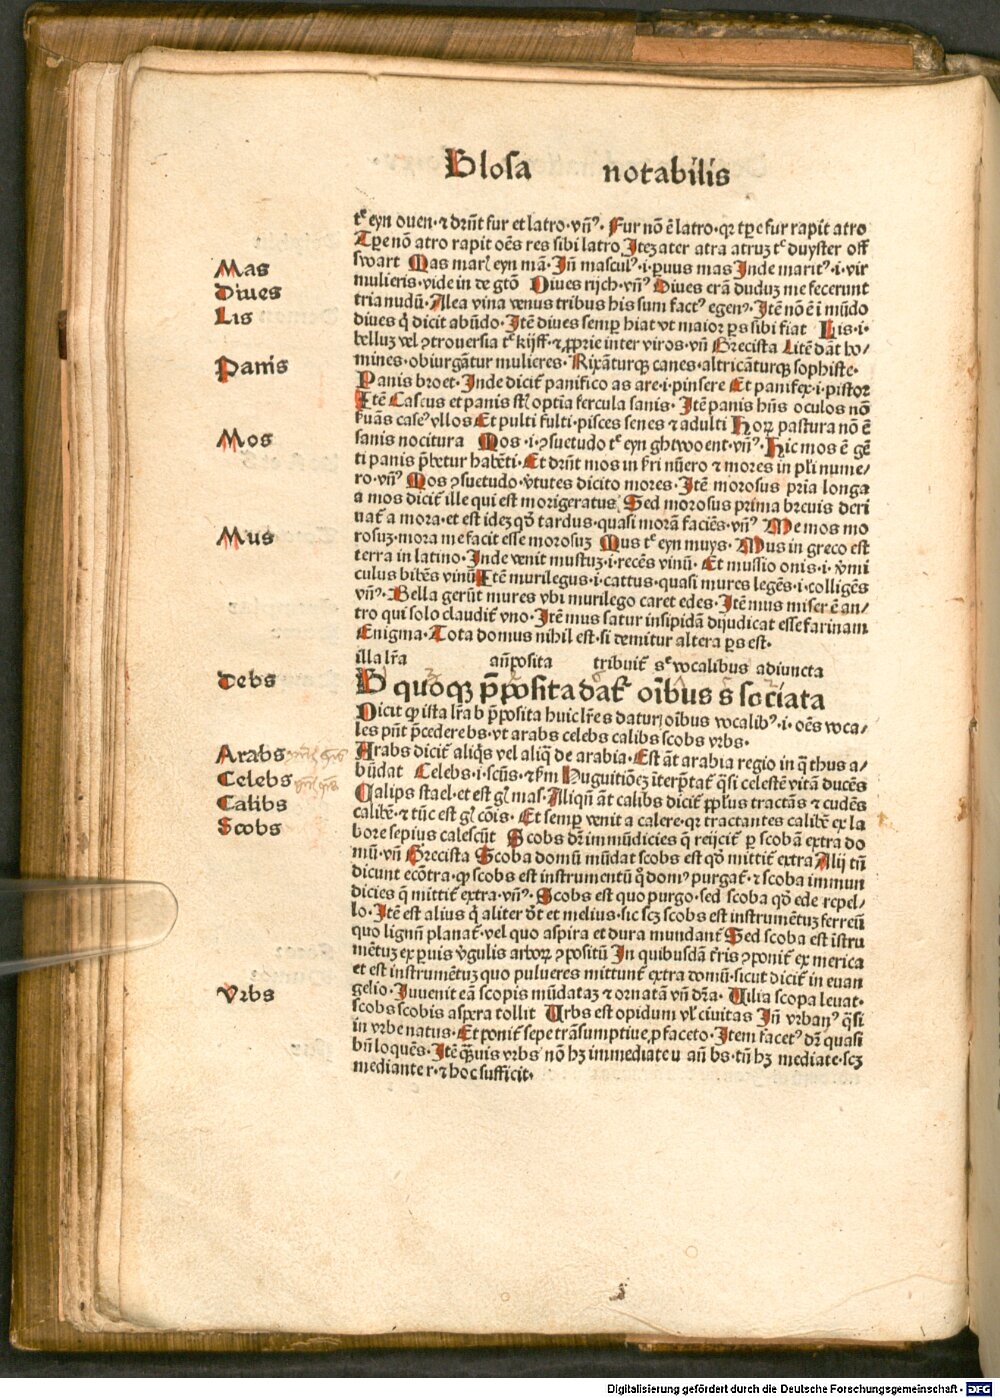 Glosa notabilis
tᵉ eyn ouen·⁊ dr̄nt fur et latro·vn̄ꝰ· Fur nō ē latro·qꝛ tꝑe fur rapit atro
Tꝑe nō atro rapit oēs res sibi latro Itez ater atra atruz tᵉ duyster off
Mas
swart Mas marl̄ eyn mā· In̄ masculꝰ·i·ꝑuus mas Inde maritꝰ·i·vir
Diues
mulieris·vide in de gtō Diues rijch·vn̄ꝰ Diues erā duduz me fecerunt
Lis
tria nudū·Alea vina venus tribus his sum factꝰ egenꝰ·Itē nō ē i mūdo
diues q̇ dicit abūdo·Itē diues semꝑ hiat vt maior ꝑs sibi fiat Lis·i·
belluz vel ꝯtrouersia tᵉ kijff·⁊ ꝓprie inter viros·vn̄ Grecista Litē dāt ho/
Panis
mines·obiurgātur mulieres·Rixāturqꝫ canes·altricāturqꝫ sophiste·
Panis broet·Inde dicit̄ panifico as are·i·pinsere Et panifex·i·pistor
Itē Caseus et panis st̄ optīa fercula sanis· Itē panis hn̄s oculos nō
ẜuās caseꝰ vllos Et pulti fulti·pisces senes ⁊ adulti Hoꝝ pastura nō ē
Mos
sanis nocitura Mos·i·ꝯsuetudo tᵉ eyn ghewoent·vn̄ꝰ·Hic mos ē gē
ti panis p̄betur habēti·Et dr̄nt mos in ẜri nūero ⁊ mores in pl̄i nume/
ro·vn̄ꝰ Mos ꝯsuetudo·v̄tutes dicito mores·Itē morosus pria longa
a mos dicit̄ ille qui est morigeratus Sed morosus prima breuis deri
uat̄ a mora·et est idez qd̄ tardus·quasi morā faciēs·vn̄ꝰ Me mos mo
Mus
rosuz·mora me facit esse morosuz Mus tᵉ eyn muys·Mus in greco est
terra in latino·Inde venit mustuz·i·recēs vinū·Et mussio onis·i·v̄mi
culus bibēs vinū Itē murilegus·i·cattus·quasi mures legēs·i·colligēs
vn̄ꝰ·Bella gerūt mures vbi murilego caret edes·Itē mus miser ē an/
tro qui solo claudit̄ vno·Itē mus satur insipidā dijudicat esse farinam
Enigma·Tota domus nihil est·si demitur altera ꝑs est·
illa lr̄a an̄posita tribuit̄ sᵉ vocalibus adiuncta
debs
B quoqꝫ p̄posita dat̄ oībus s sociata
Dicit ꝙ ista lr̄a b p̄posita huic lr̄e s datur oībus vocalibꝰ·i·oēs voca/
les pn̄t p̄cedere bs·vt arabs celebs calibs scobs vrbs·
Arabs
Arabs dicit̄ aliqⷮs vel aliq̄ de arabia·Est āt arabia regio in q̄ thus a/
Celebs
būdat Celebs·i·scūs·⁊ ẜm Huguitiōez īterp̄tat̄ q̄si celestē vitā ducēs
Calibs
Calips stael·et est gl̄ mas·Aliqn̄ āt calibs dicit̄ pplus tractās ⁊ cudēs
Scobs
calibē·⁊ tūc est gl̄ cōis· Et semꝑ venit a calere·qꝛ tractantes calibē ex la
bore sepius calescūt Scobs dr̄ immūdicies q̄ reijcit̄ ꝑ scobā extra do
mū·vn̄ Grecista Scoba domū mūdat scobs est qd̄ mittit̄ extra Alij tn̄
dicunt ecōtra·ꝙ scobs est instrumentū q̇ domꝰ purgat̄·⁊ scoba immun
dicies q̄ mittit̄ extra·vn̄ꝰ·Scobs est quo purgo·sed scoba qd̄ ede repel/
lo·Itē est alius q̇ aliter dt̄ et melius·sic scꝫ scobs est instrumētuz ferreū
quo lignū planat̄·vel quo aspira et dura mundant̄ Sed scoba est īstru
mētuz ex ꝑuis v̄gulis arboꝝ ꝯpositū In quibusdā tr̄is ꝯponit̄ ex merica
et est instrumētuz quo pulueres mittunt̄ extra domū·sicut dicit̄ in euan
Vrbs
gelio·Juuenit eā scopis mūdataz ⁊ ornatā vn̄ dr̄a· Vilia scopa leuat·
scobs scobis aspera tollit Urbs est opidum vl̄ ciuitas In̄ vrbanꝰ q̄si
in vrbe natus·Et ponit̄ sepe trāsumptiue ꝓ faceto·Item facetꝰ dr̄ quasi
bn̄ loquēs·Itē qꝫuis vrbs nō hꝫ immediate u an̄ bs·tn̄ hꝫ mediate·scꝫ
mediante r·⁊ hoc sufficit·
Digitalisierung gefördert durch die Deutsche Forschungsgemeinschaft - DFG